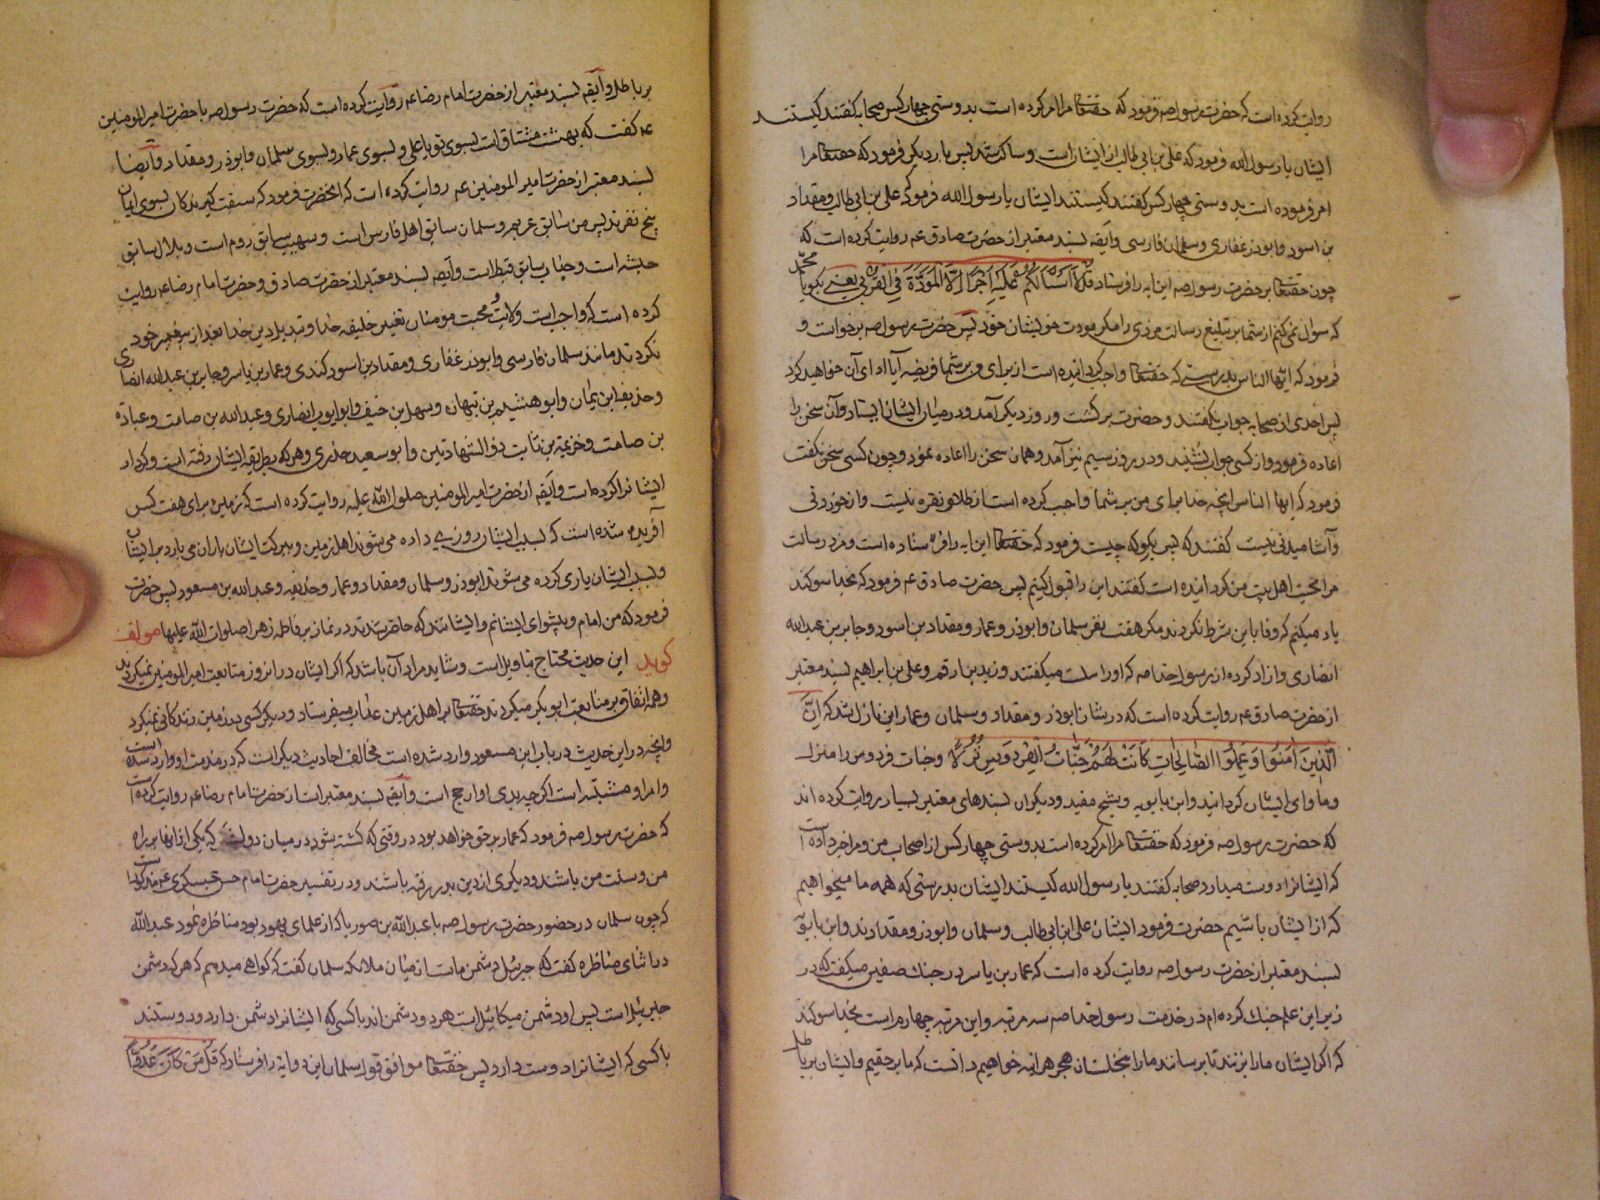 روایت کرده است که حضرت رسول صه فرمود که حقتعالی مرا امر کرده است بدوستی چهار کس صحابه گفتند کیستند
ایشان یا رسول الله فرمود که علی بن ابی طالب از ایشان است و ساکت شد پس بار دیگر فرمود که حقتعالی مرا
امر فرموده است بدوستی چهار کس گفتند کیستند ایشان یا رسول الله فرمود که علی بن ابی طالب و مقداد
بن اسود و ابوذر غفاری و سلمان فارسی و ایضه بسند معتبر از حضرت صادق عم روایت کرده است که
چون حقتعالی بر حضرت رسول صه این آیه را فرستاد قُلْ لَا اَسْئَلُكُمْ عَلَيْهِ اَجْرًا اِلَّا الْمَوَدَّةَ فِى الْقُرْبٰى یعنی بگو یا محمد
که سؤال نمی کنم از شما بر تبلیغ رسالت مزدی را مگر مودت خویشان خود پس حضرت رسول صه برخواست و
فرمود که ایها الناس بدرستی که حقتعالی واجب گردانیده است از برای من بر شما فریضه آیا ادای آن خواهید کرد
پس احدی از صحابه جواب نگفتند و حضرت برگشت و روز دیگر آمد و در میان ایشان ایستاد و آن سخن را
اعاده فرمود و از کسی جواب نشنید و در روز سیم نیز آمد و همان سخن را اعاده نمود و چون کسی سخن نگفت
فرمود که ایها الناس آنچه خدا برای من بر شما واجب کرده است از طلا و نقره نیست و از خوردنی
و آشامیدنی نیست گفتند که پس بگو که چیست فرمود که حقتعالی این آیه را فرستاده است و مزد رسالت
مرا محبت اهل بیت من گردانیده است گفتند این را قبول کنیم پس حضرت صادق عم فرمود که بخدا سوکند
یاد میکنم که وفا باین شرط نکردند مگر هفت نفر سلمان و ابوذر و عمار و مقداد بن اسود و جابر بن عبدالله
انصاری و آزاد کرده از رسول خدا صه که او را میگفتند و زید بن ارقم و علی بن ابراهیم بسند معتبر
از حضرت صادق عم روایت کرده است که در شان ابوذر و مقداد و سلمان و عمار این نازل شد که اِنَّ
الَّذینَ اٰمَنُوا وَعَمِلُوا الصّالِحاتِ كانَتْ لَهُمْ جَنّاتُ الْفِرْدَوْسِ نُزُلًا و جنات فردوس را منزل
و ماوای ایشان گردانید و ابن بابویه و شیخ مفید و دیگران بسندهای معتبر بسیار روایت کرده اند
که حضرت رسول صه فرمود که حقتعالی مرا امر کرده است بدوستی چهار کس از اصحاب من و مرا خبر داده است
که ایشانرا دوست میدارد صحابه گفتند یا رسول الله کیستند ایشان بدرستی که همه ما میخواهیم
که از ایشان باشیم حضرت فرمود ایشان علی ابن ابی طالب و سلمان و ابوذر و مقدادند و ابن بابویه
بسند معتبر از حضرت رسول صه روایت کرده است که عمار بن یاسر در جنک صفین میگفت که در
زیر این علم جنک کرده ام در خدمت رسول خدا صه سه مرتبه و این مرتبه چهارم است بخدا سوکند
که اگر ایشان ما را بزنند تا برسانند ما را بنخلستان هجر هر اینه خواهیم دانست که ما بر حقیم و ایشان بر باطل
بر باطل و ایضه بسند معتبر از حضرت امام رضا عم روایت کرده است که حضرت رسول صه با حضرت امیرالمومنین
عه گفت که بهشت مشتاق است بسوی تو یا علی و بسوی عمار و بسوی سلمان و ابوذر و مقداد و ایضا
بسند معتبر از حضرت امیرالمومنین عم روایت کرده است که آنحضرت فرمود که سبقت گیرندکان بسوی ایمان
پنج نفرند پس من سابق عربم و سلمان سابق اهل فارس است و سهیب سابق روم است و بلال سابق
حبشه است و خباب سابق قبط است و ایضه بسند معتبر از حضرت صادق و حضرت امام رضا عم روایت
کرده است که واجب است ولایت و محبت مومنان تغییر خلیفه خدا و تبدیل دین خدا بعد از پیغمبر خود
نکردند مانند سلمان فارسی و ابوذر غفاری و مقداد بن اسود کندی و عمار بن یاسر و جابر بن عبدالله انصاری
و حذیفه ابن یمان و ابو هشیم بن نیهان و سهل بن حنیف و ابو ایوب انصاری و عبدالله بن صامت و عباده
بن صامت و خزیمة بن ثابت ذو الشهادتین و ابو سعید خدری و هر که بطریقه ایشان رفته است و کردار
ایشانرا کرده است و ایضه از حضرت امیرالمومنین صلوات الله علیه روایت کرده است که زمین برای هفت کس
آفریده شده است که بسبب ایشان روزی داده می شوند اهل زمین و ببرکت ایشان باران می بارد بر ایشان
و بسبب ایشان یاری کرده می شوند ابوذر و سلمان و مقداد و عمار و حذیفه و عبدالله بن مسعود پس حضرت
فرمود که من امام و پیشوای ایشانم و ایشانند که حاضر شدند در نماز بر فاطمه زهرا صلوات الله علیها مولف
گوید این حدیث محتاج بتاویل است و شاید مراد آن باشد که اگر ایشان در آن روز متابعت امیرالمومنین نمیکردند
و همه اتفاق بر متابعت ابوبکر میکردند حقتعالی بر اهل زمین عذاب میفرستاد و دیگر کسی در زمین زندکانی نمیکرد
و آنچه در این حدیث در باب ابن مسعود وارد شده است مخالف احادیث دیگر است که در مذمت او وارد شده است
و امر او مشتبه است اگر چه بدی او ارجح است و ایضه بسند معتبر است از حضرت امام رضا عم روایت کرده است
که حضرت رسول صه فرمود که عمار بر حق خواهد بود در وقتی که کشته شود در میان دو لشکر که یکی از آنها بر راه
من و سنت من باشند و دیگری از دین بدر رفته باشند و در تفسیر حضرت امام حسن عسکری عم مذکور است
که چون سلمان در حضور حضرت رسول صه با عبدالله بن صوریا که از علمای یهود بود مناظره نمود عبدالله
در اثنای مناظره گفت که جبرئیل دشمن ماست از میان ملائکه سلمان گفت که گواهی میدهم که هر که دشمن
جبرئیل است پس او دشمن میکائیل است هر دو دشمن اند با کسی که ایشانرا دشمن دارد و دوستند
با کسی که ایشانرا دوست دارد پس حقتعالی موافق قول سلمان این دو آیه را فرستاد که قُلْ مَنْ كَانَ عَدُوًّا